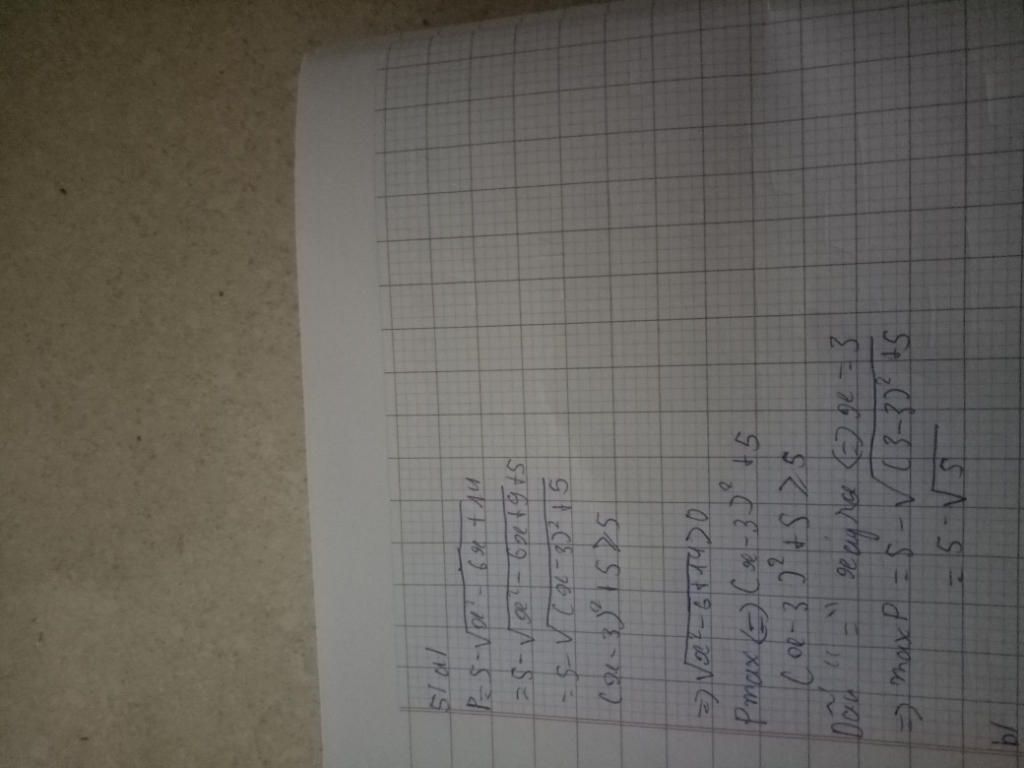 5/ a/
P = 5 - √(x² - 6x + 14)
= 5 - √(x² - 6x + 9 + 5)
= 5 - √((x - 3)² + 5)
(x - 3)² + 5 ≥ 5
=> √(x² - 6 + 14) ≥ 0
Pmax <=> (x - 3)² + 5
(x - 3)² + 5 ≥ 5
Dấu "=" xảy ra <=> x = 3
=> max P = 5 - √((3 - 3)² + 5)
= 5 - √5
b/